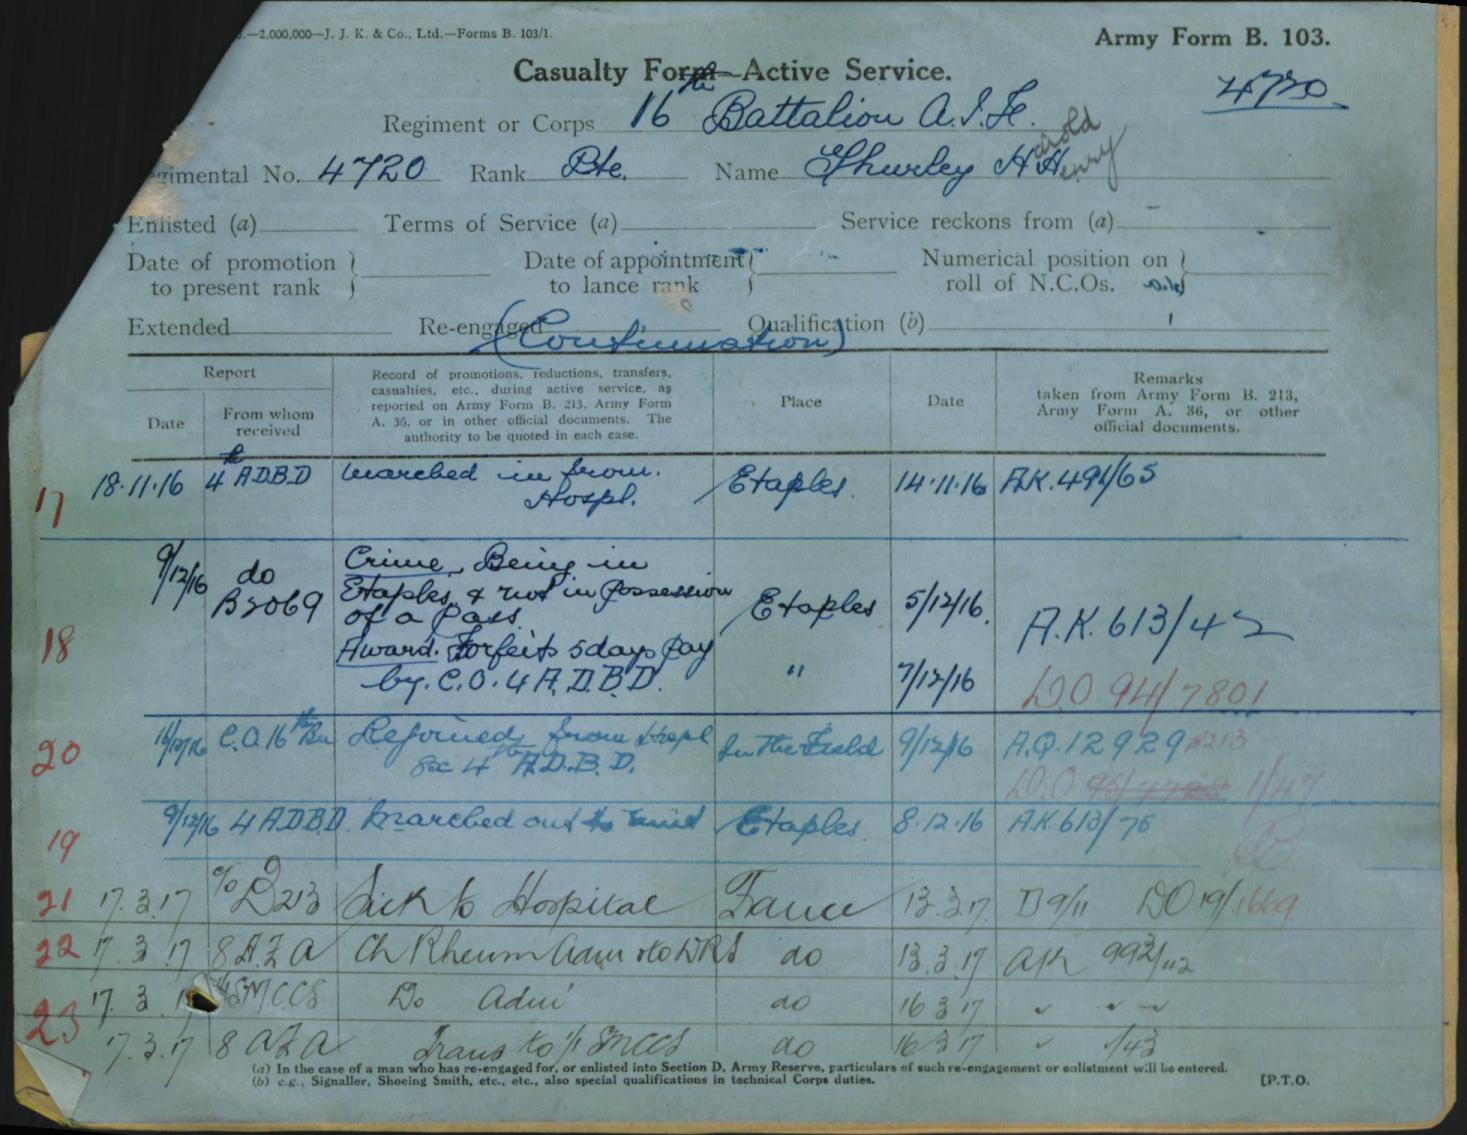 .—2,000,000—J. J. K. & Co., Ltd.—Forms B. 103/1.
Army Form B. 103.
Casualty Form—Active Service.
4720
Regiment or Corps 16th Battalion A.I.F.
gimental No. 4720 Rank Pte. Name Shurley H H
arold
enry
Enlisted (a) Terms of Service (a) Service reckons from (a)
Date of promotion to present rank } Date of appointment to lance rank } Numerical position on roll of N.C.Os. }
Extended Re-engaged Qualification (b)
(Continuation)
Report
Date
From whom received
Record of promotions, reductions, transfers,
casualties, etc., during active service, as
reported on Army Form B. 213, Army Form
A. 36, or in other official documents. The
authority to be quoted in each case.
Place
Date
Remarks
taken from Army Form B. 213,
Army Form A. 36, or other
official documents.
17 18.11.16 4th A.D.B.D marched in from Etaples. 14.11.16 A.K.491/65
Hospl.
18 9/12/16 do Crime. Being in
B2069 Etaples & not in possession Etaples 5/12/16. A.K. 613/42
of a Pass.
Award. Forfeits 5 days pay
by C.O. 4 A.D.B.D. " 7/12/16 D.O. 94/7801
20 C.O. 16th Bn Rejoined from Hospl In The Field 9/12/16 A.Q.12929 A213
Ex 4th A.D.B.D.
D.O 1/47
19 9/12/16 4 A.D.B.D. Marched out to unit Etaples. 8.12.16 A.K.613/75
21 17.3.17 213 Sick to Hospital France 13.3.17. B 9/11 DO 19/1669
22 17.3.17 8 A.F.A Ch Rheum Adm & to DRS do 13.3.17 AK 993/42
23 17.3.17 SMCCS Do Adm do 16 3 17
17.3.17 8 AFA Trans to 1/1 SMCCS do 16 3 17 /43
(a) In the case of a man who has re-engaged for, or enlisted into Section D, Army Reserve, particulars of such re-engagement or enlistment will be entered.
(b) e.g., Signaller, Shoeing Smith, etc., etc., also special qualifications in technical Corps duties. [P.T.O.